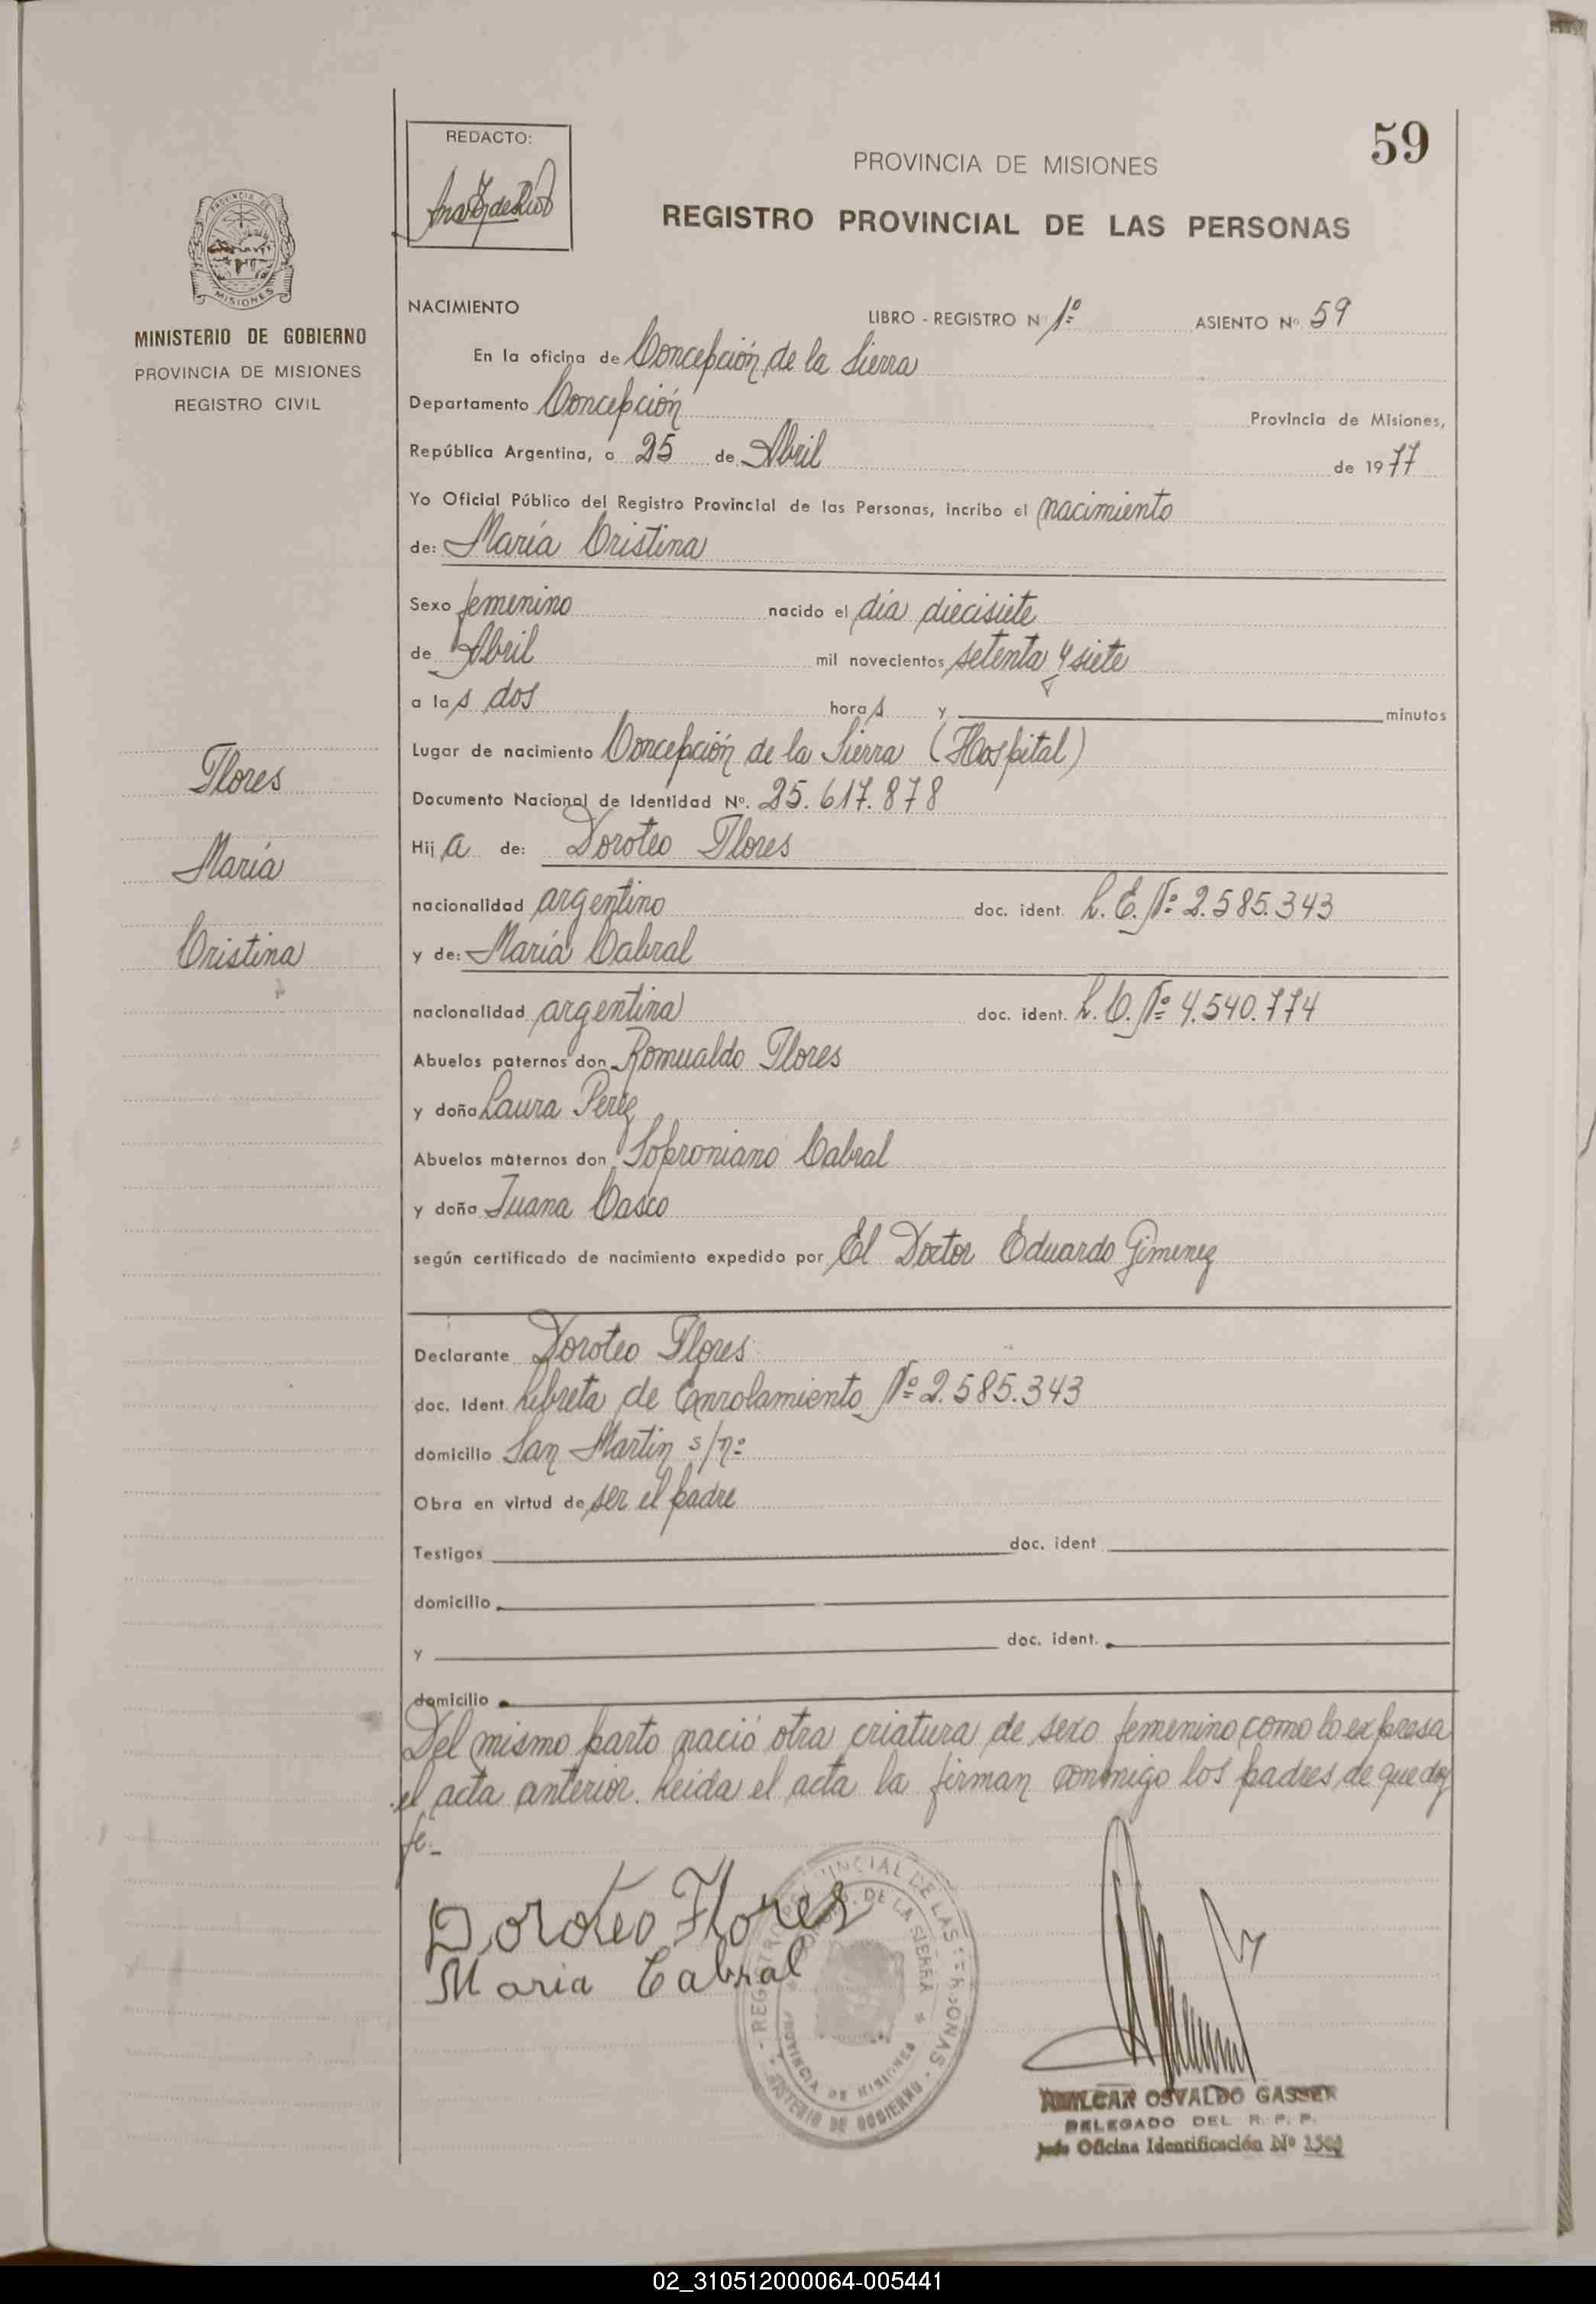 59
REDACTO:
PROVINCIA DE MISIONES
REGISTRO PROVINCIAL DE LAS PERSONAS
PROVINCIA DE
MISIONES
MINISTERIO DE GOBIERNO
PROVINCIA DE MISIONES
REGISTRO CIVIL
NACIMIENTO LIBRO - REGISTRO N 1º ASIENTO Nº 59
En la oficina de Concepción de la Sierra
Departamento Concepción Provincia de Misiones,
República Argentina, a 25 de Abril de 1977
Yo Oficial Público del Registro Provincial de las Personas, incribo el nacimiento
de: María Cristina
Sexo femenino nacido el día diecisiete
de Abril mil novecientos setenta y siete
a las dos horas y minutos
Lugar de nacimiento Concepción de la Sierra (Hospital)
Documento Nacional de Identidad Nº. 25.617.878
Hija de: Doroteo Flores
nacionalidad argentino doc. ident. L.E. Nº 2.585.343
y de: María Cabral
nacionalidad argentina doc. ident. L.C. Nº 4.540.774
Abuelos paternos don Romualdo Flores
y doña Laura Perez
Abuelos maternos don Soproniano Cabral
y doña Juana Casco
según certificado de nacimiento expedido por El Doctor Eduardo Gimenez
Flores
María
Cristina
Declarante Doroteo Flores
doc. Ident. Libreta de Enrolamiento Nº 2.585.343
domicilio San Martin s/nº
Obra en virtud de ser el padre
Testigos doc. ident
domicilio
y doc. ident.
domicilio
Del mismo parto nació otra criatura de sexo femenino como lo expresa
el acta anterior. Leida el acta la firman conmigo los padres de que doy
fe.-
Doroteo Flores
Maria Cabral
DE LA SIERRA
PROVINCIA DE MISIONES
OSVALDO GASSER
DELEGADO DEL R. P. P.
Jefe Oficina Identificación Nº
02_310512000064-005441